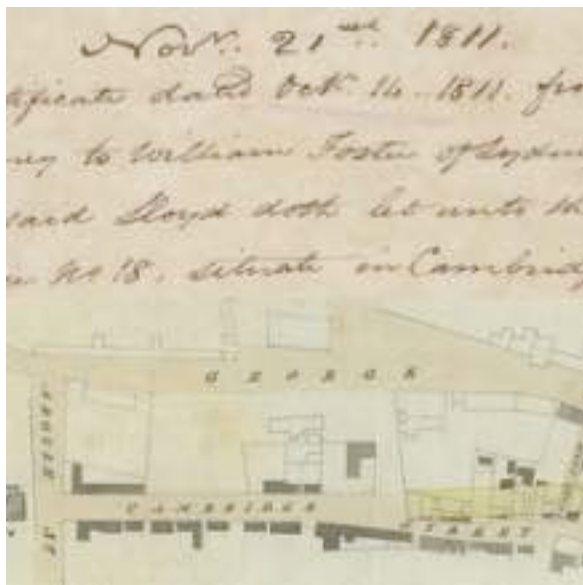 Novr. 21st 1811.
tificate dated Octr 14. 1811. fro
ney to William Foster of Sydne
said Lloyd doth let unto
No 18. situate in Cambridg
GEORGE
CAMBRIDGE STREET
ST